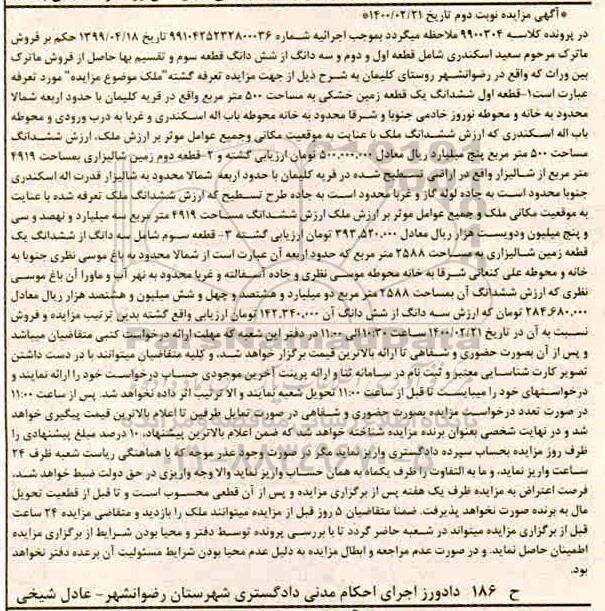 *آگهی مزایده نوبت دوم تاریخ ۱۴۰۰/۰۲/۲۱*
در پرونده کلاسه ۹۹۰۰۳۰۴ ملاحظه میگردد بموجب اجرائیه شماره ۹۹۱۰۴۲۵۲۳۲۸۰۰۰۳۶ تاریخ ۱۳۹۹/۰۴/۱۸ حکم بر فروش
ماترک مرحوم سعید اسکندری شامل قطعه اول و دوم و سه دانگ از شش دانگ قطعه سوم و تقسیم بها حاصل از فروش ماترک
بین وراث که واقع در رضوانشهر روستای کلیمان به شرح ذیل از جهت مزایده تعرفه گشته"ملک موضوع مزایده" مورد تعرفه
عبارت است۱-قطعه اول ششدانگ یک قطعه زمین خشکی به مساحت ۵۰۰ متر مربع واقع در قریه کلیمان با حدود اربعه شمالا
به خانه و محوطه نوروز خادمی جنوبا و شرقا محدود به خانه محوطه باب اله اسکندری و غربا به درب ورودی و محوطه
باب اله اسکندری که ارزش ششدانگ ملک با عنایت به موقعیت مکانی وجمیع عوامل موثر بر ارزش ملک، ارزش ششدانگ
مساحت ۵۰۰ متر مربع پنج میلیارد ریال معادل ۵۰۰,۰۰۰,۰۰۰ تومان ارزیابی گشته و ۲-قطعه دوم زمین شالیزاری بمساحت ۴۹۱۹
متر مربع از شالیزار واقع در اراضی تسطیح شده در قریه کلیمان با حدود اربعه شمالا محدود به شالیزار قدرت اله اسکندری
جنوبا محدود است به جاده لوله گاز و غربا محدود است به جاده طرح تسطیح که ارزش ششدانگ ملک تعرفه شده با عنایت
به موقعیت مکانی ملک و جمیع عوامل موثر بر ارزش ملک ارزش ششدانگ مساحت ۴۹۱۹ متر مربع سه میلیارد و نهصد و سی
و پنج میلیون ودویست هزار ریال معادل ۳۹۳,۵۲۰,۰۰۰ تومان ارزیابی گشته ۳- قطعه سوم شامل سه دانگ از ششدانگ یک
قطعه زمین شالیزاری به مساحت ۲۵۸۸ متر مربع که حدود اربعه آن عبارت است از شمالا محدود به باغ موسی نظری جنوبا به
خانه و محوطه علی کنعانی شرقا به خانه محوطه موسی نظری و جاده آسفالته و غربا محدود به نهر آب و ماورا آن باغ موسی
نظری که ارزش ششدانگ آن بمساحت ۲۵۸۸ متر مربع دو میلیارد و هشتصد و چهل و شش میلیون و هشتصد هزار ریال معادل
۲۸۴,۶۸۰,۰۰۰ تومان که ارزش سه دانگ از شش دانگ آن ۱۴۲,۳۴۰,۰۰۰ تومان ارزیابی واقع گشته بدین ترتیب مزایده و فروش
نسبت به آن در تاریخ ۱۴۰۰/۰۲/۲۱ ساعت ۱۰:۳۰ الی ۱۱:۰۰ در دفتر این شعبه که مهلت ارائه درخواست کتبی متقاضیان میباشد
و پس از آن بصورت حضوری و شفاهی تا ارائه بالاترین قیمت برگزار خواهد شد. و کلیه متقاضیان میتوانند با در دست داشتن
تصویر کارت شناسایی معتبر و ثبت نام در سامانه ثنا و ارائه پرینت آخرین موجودی حساب درخواست خود را ارائه نمایند و
درخواستهای خود را میبایست تا قبل از ساعت ۱۱:۰۰ تحویل شعبه نمایند و الا ترتیب اثر داده نخواهد شد. پس از ساعت ۱۱:۰۰
در صورت تعدد درخواست مزایده بصورت حضوری و شفاهی در صورت تمایل طرفین تا اعلام بالاترین قیمت پیگیری خواهد
شد و در نهایت شخصی بعنوان برنده مزایده شناخته خواهد شد که ضمن اعلام بالاترین پیشنهاد، ۱۰ درصد مبلغ پیشنهادی را
ظرف روز مزایده بحساب سپرده دادگستری واریز نماید مگر در صورت وجود عذر موجه که با هماهنگی ریاست شعبه ظرف ۲۴
ساعت واریز نماید، و ما به التفاوت را ظرف یکماه به همان حساب واریز نماید والا وجه واریزی در حق دولت ضبط خواهد شد.
فرصت اعتراض به مزایده ظرف یک هفته پس از برگزاری مزایده و پس از آن قطعی محسوب است و تا قبل از قطعیت تحویل
مال به برنده صورت نخواهد پذیرفت. ضمنا متقاضیان ۵ روز قبل از مزایده میتوانند ملک را بازدید و متقاضی مزایده ۲۴ ساعت
قبل از برگزاری مزایده میتواند در شعبه حاضر گردد تا با بررسی پرونده توسط دفتر و محیا بودن شرایط از برگزاری مزایده
اطمینان حاصل نماید. و در صورت عدم مراجعه و ابطال مزایده به دلیل عدم محیا بودن شرایط مسئولیت آن برعده دفتر نخواهد
بود.
ح ۱۸۶ دادورز اجرای احکام مدنی دادگستری شهرستان رضوانشهر- عادل شیخی
ParsNamadData